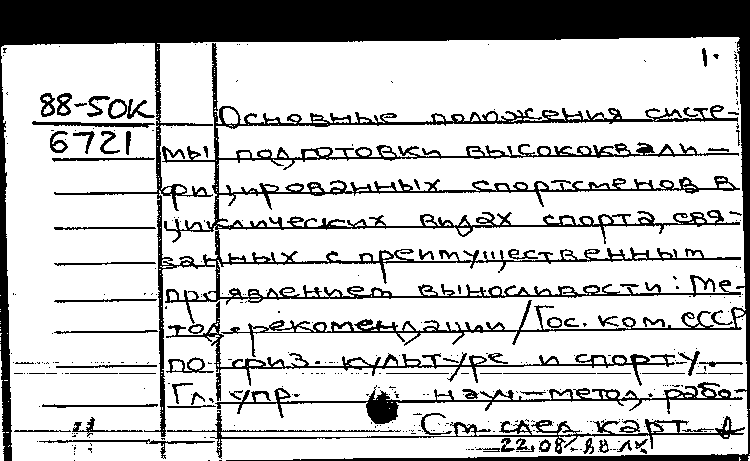 1.
88-50К
6721
Основные положения систе-
мы подготовки высококвали-
фицированных спортсменов в
циклических видах спорта, свя-
занных с преимущественным
проявлением выносливости: Ме-
тод. рекомендации / Гос. ком. СССР
по физ. культуре и спорту.
Гл. упр. науч.-метод. рабо-
См. след карт
22.08.88